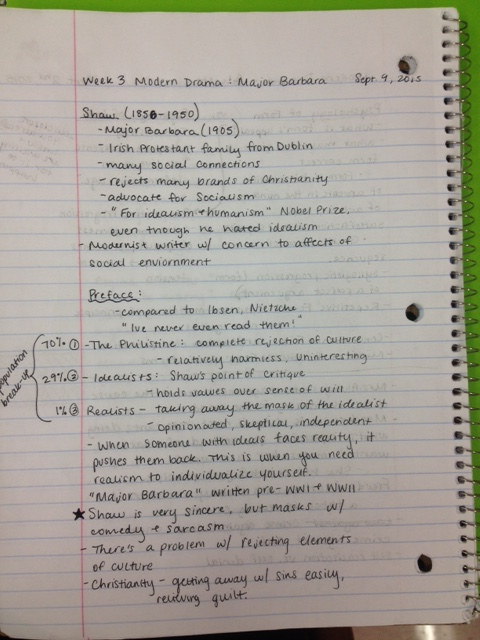 Week 3 Modern Drama: Major Barbara Sept. 9, 2015
Shaw (1856-1950)
- Major Barbara (1905)
- Irish Protestant family from Dublin
- many social connections
- rejects many brands of Christianity
- advocate for Socialism
- "For idealism + humanism" Nobel Prize,
even though he hated idealism
- Modernist writer w/ concern to affects of
social enviornment
Preface:
- compared to Ibsen, Nietzche
"Ive never even read them!"
population
break-up
70% ① - The Philistine: complete rejection of culture
- relatively harmless, uninteresting
29% ② - Idealists: Shaw's point of critique
- holds values over sense of will
1% ③ Realists - taking away the mask of the idealist
- opinionated, skeptical, independent
- When someone with ideals faces reality, it
pushes them back. This is when you need
realism to individualize yourself.
"Major Barbara" written pre-WWI + WWII
★ Shaw is very sincere, but masks w/
comedy + sarcasm
- There's a problem w/ rejecting elements
of culture
- Christianity - getting away w/ sins easily,
relieving guilt.